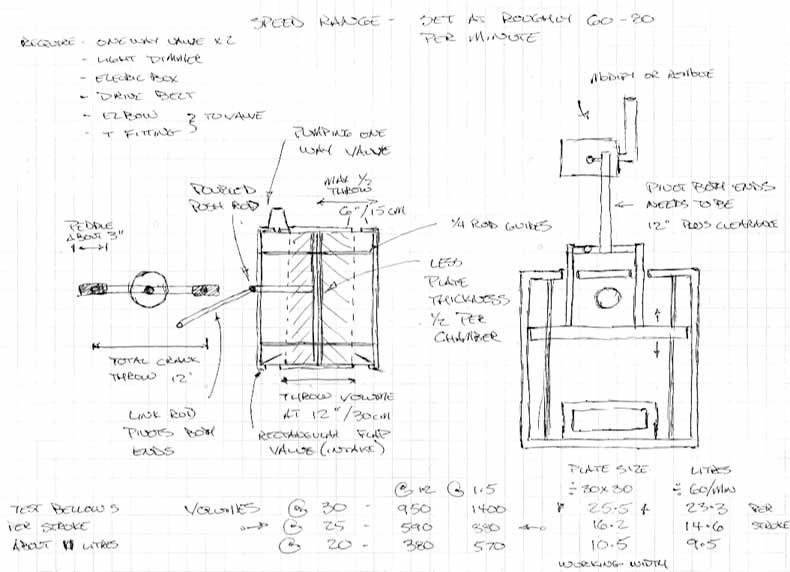 SPEED RANGE - SET AT ROUGHLY 60-80
PER MINUTE
REQUIRE - ONE WAY VALVE X2
- LIGHT DIMMER
- ELECRIC BOX
- DRIVE BELT
- ELBOW } TO VALVE
- T FITTING
MODIFY OR REMOVE
PUMPING ONE
WAY VALVE
MAX 1/2
THROW
6"/15CM
DOUBLED
PUSH ROD
PEDDLE
ABOUT 3"
1/4 ROD GUIDES
PIVOT BOTH ENDS
NEEDS TO BE
12" PLUS CLEARANCE
LESS
PLATE
THICKNESS
1/2 PER
CHAMBER
TOTAL CRANK
THROW 12"
LINK ROD
PIVOTS BOTH
ENDS
THROW VOLUME
AT 12"/30CM
RECTANGULAR FLAP
VALVE (INTAKE)
PLATE SIZE LITRES
@ 12 @ 1.5 ÷ 30X30 ÷ 60/MIN
TEST BELLOWS VOLUMES @ 30 - 950 1400 25.5 23.3 PER
PER STROKE @ 25 - 590 880 16.2 14.6 STROKE
ABOUT LITRES @ 20 - 380 570 10.5 9.5
WORKING WIDTH